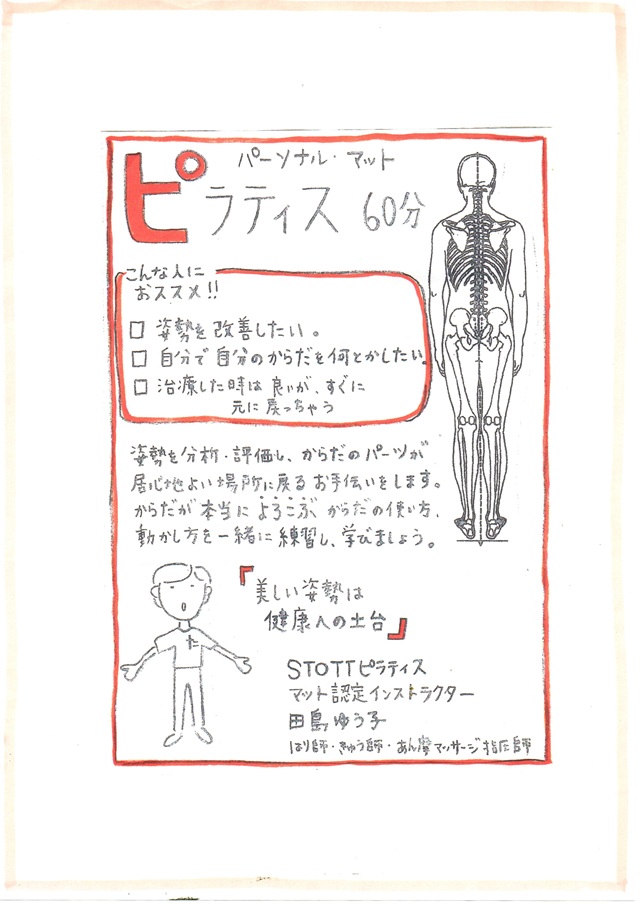 パーソナル・マット
ピラティス 60分
こんな人に
おススメ!!
□ 姿勢を改善したい。
□ 自分で自分のからだを何とかしたい。
□ 治療した時は良いが、すぐに
元に戻っちゃう
姿勢を分析・評価し、からだのパーツが
居心地よい場所に戻るお手伝いをします。
からだが本当によろこぶからだの使い方、
動かし方を一緒に練習し、学びましょう。
『美しい姿勢は
健康への土台』
た
STOTTピラティス
マット認定インストラクター
田島ゆう子
はり師・きゅう師・あん摩マッサージ指圧師